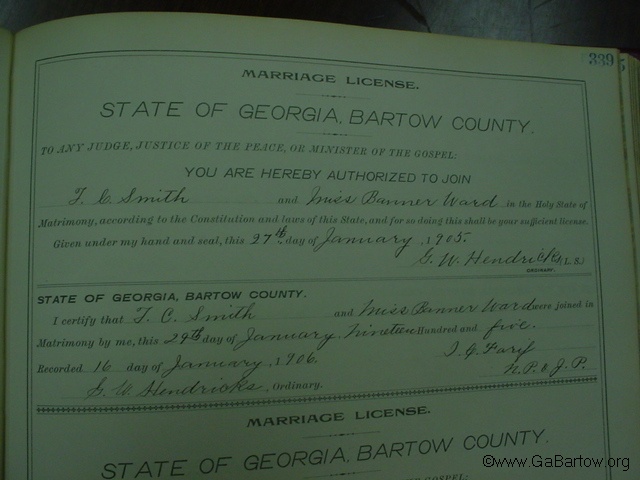 339
MARRIAGE LICENSE.
STATE OF GEORGIA, BARTOW COUNTY.
TO ANY JUDGE, JUSTICE OF THE PEACE, OR MINISTER OF THE GOSPEL:
YOU ARE HEREBY AUTHORIZED TO JOIN
T. C. Smith and Miss Banner Ward in the Holy State of
Matrimony, according to the Constitution and laws of this State, and for so doing this shall be your sufficient license.
Given under my hand and seal, this 27th day of January, 1905.
G. W. Hendricks (L.S.)
ORDINARY.
STATE OF GEORGIA, BARTOW COUNTY.
I certify that T. C. Smith and Miss Banner Ward were joined in
Matrimony by me, this 29th day of January, Nineteen Hundred and five.
Recorded 16 day of January, 1906.
N.P. & J.P.
G. W. Hendricks, Ordinary.
MARRIAGE LICENSE.
STATE OF GEORGIA, BARTOW COUNTY.
©www.GaBartow.org